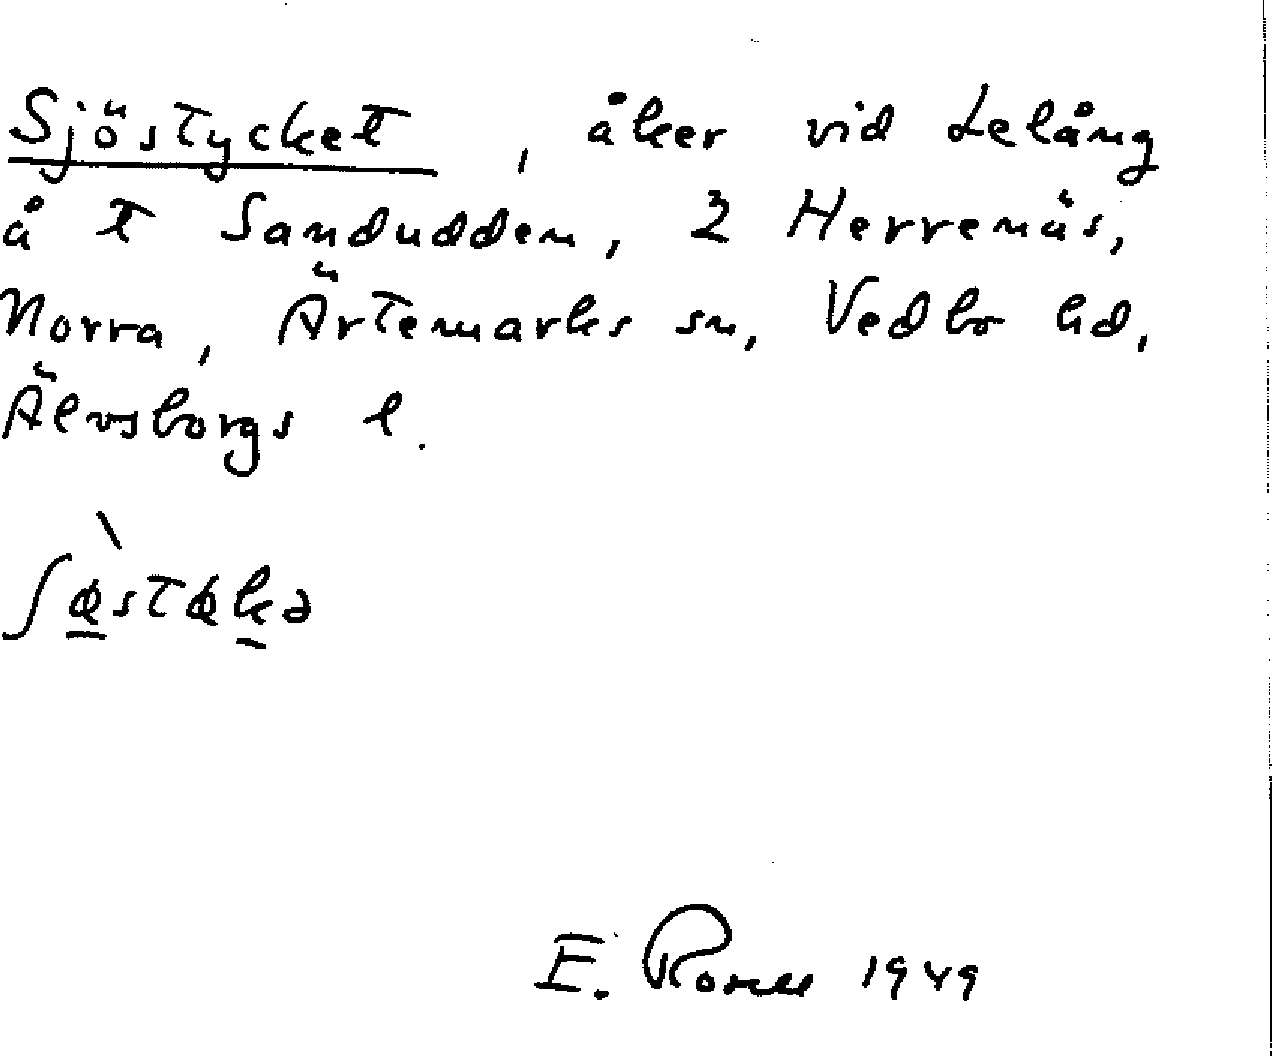 Sjöstycket, åker vid Lelång
å t Sandudden, 2 Herrenäs,
Norra, Ärtemarks sn, Vedbo hd,
Älvsborgs l.
E. 1949